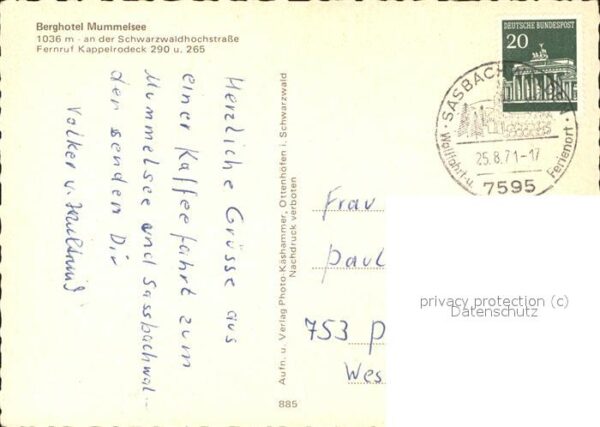 Berghotel Mummelsee
1036 m - an der Schwarzwaldhochstraße
Fernruf Kappelrodeck 290 u. 265
Herzliche Grüsse aus
einer Kaffeefahrt zum
Mummelsee und Sassbachwal-
der senden Dir
Volker u.
Aufn. u. Verlag Photo-Käshammer, Ottenhöfen i. Schwarzwald
Nachdruck verboten
885
DEUTSCHE BUNDESPOST
20
SASBACH
25.8.71-17
Wallfahrt-u. Ferienort
7595
Frau
Paul
753 P
Wes
privacy protection (c)
Datenschutz